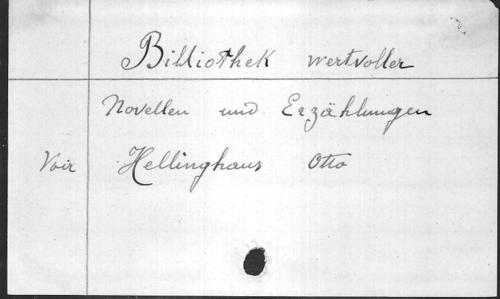 Bibliothek wertvoller
Novellen und Erzählungen
Voir Hellinghaus Otto